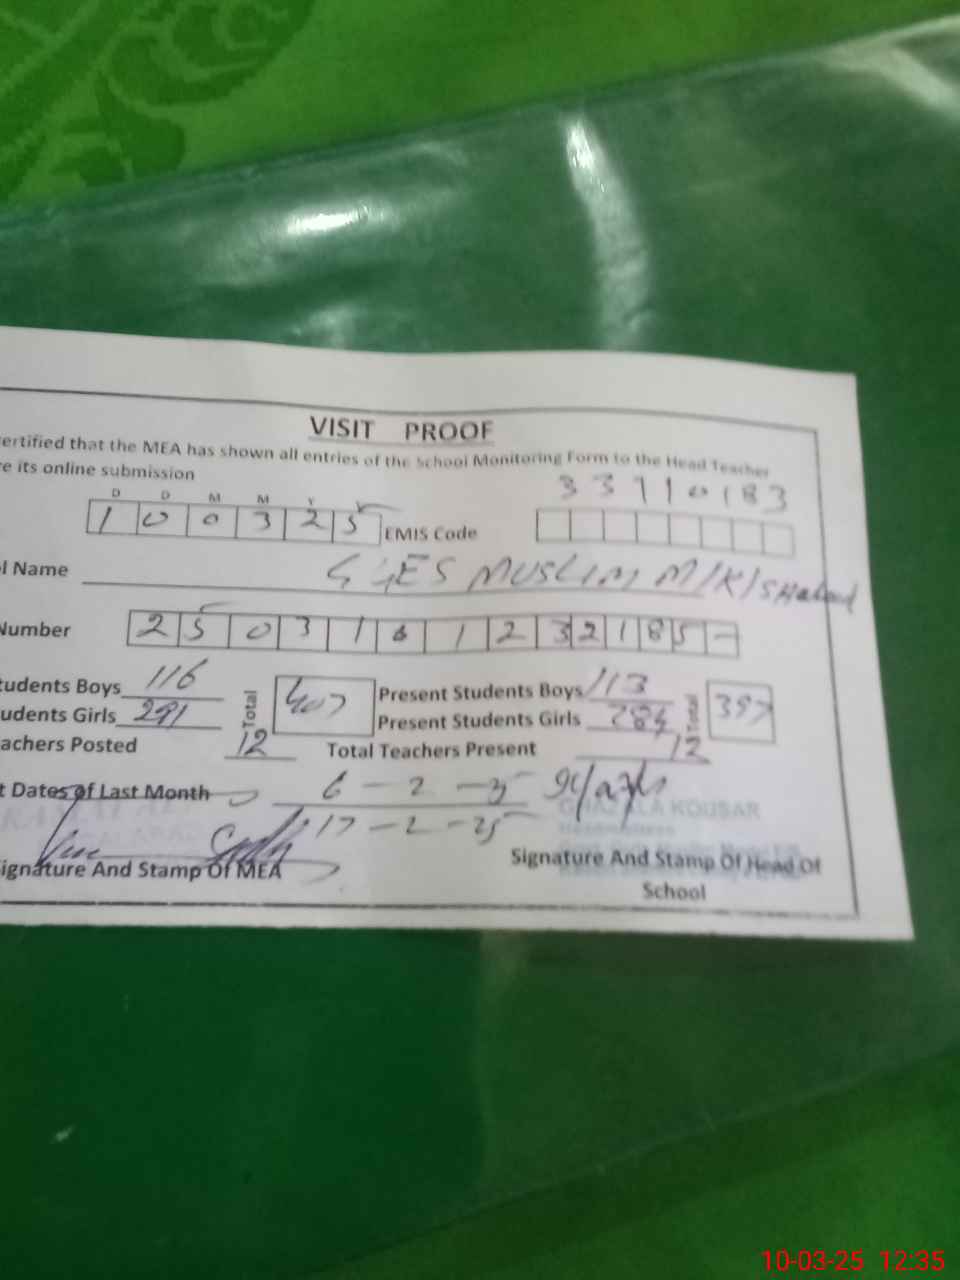 VISIT PROOF
ertified that the MEA has shown all entries of the School Monitoring Form to the Head Teacher
re its online submission
D D M M Y
1 0 0 3 2 5 EMIS Code 33110183
l Name GGES MUSLIM M/K/SHabad
Number 2 5 0 3 1 0 1 2 3 2 1 8 5 -
tudents Boys 116 Total 407 Present Students Boys 113 Total 397
udents Girls 291 Present Students Girls 284
achers Posted 12 Total Teachers Present 12
t Dates of Last Month 6 - 2 - 25
17 - 2 - 25
GHAZALA KOUSAR
ignature And Stamp Of MEA Signature And Stamp Of Head Of
School
10-03-25 12:35